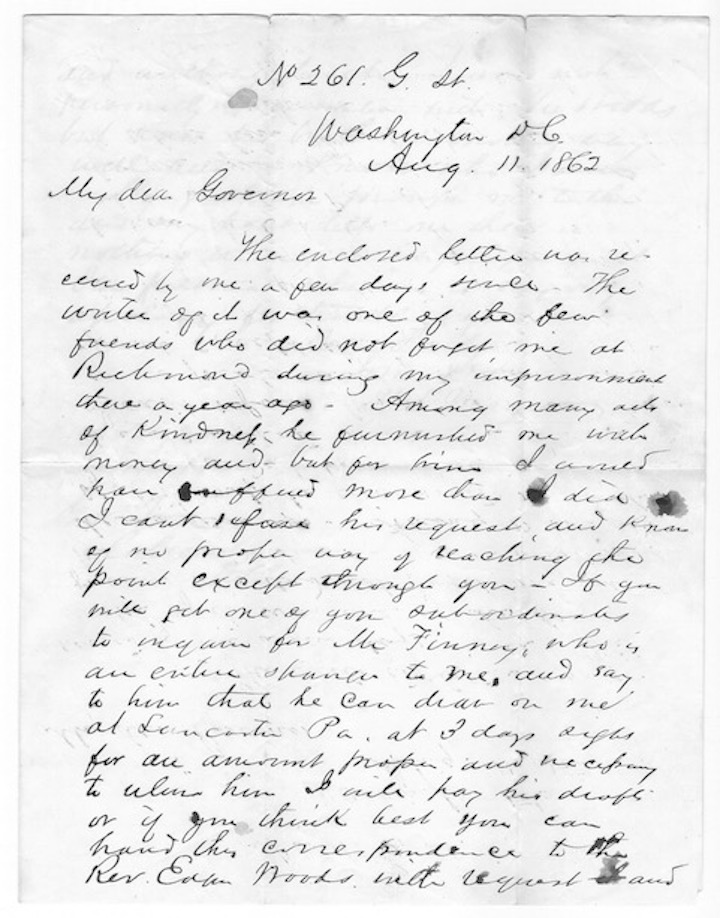 No 261. G. St.
Washington D.C.
Aug. 11. 1862
My dear Governor
The enclosed letter was re-
ceived by me a few days since - The
writer of it was one of the few
friends who did not forget me at
Richmond during my imprisonment
there a year ago - Among many acts
of Kindness he furnished me with
money and but for him I would
have suffered more than I did
I cant refuse his request, and know
of no proper way of reaching the
point except through you - If you
will get one of your subordinates
to inquire for Mr Finney, who is
an entire stranger to me, and say
to him that he can draw on me
at Lancaster Pa. at 3 days sight
for an amount proper and necessary
to relieve him I will pay his draft
or if you think best you can
hand this correspondence to the
Rev. Edgar Woods with request and